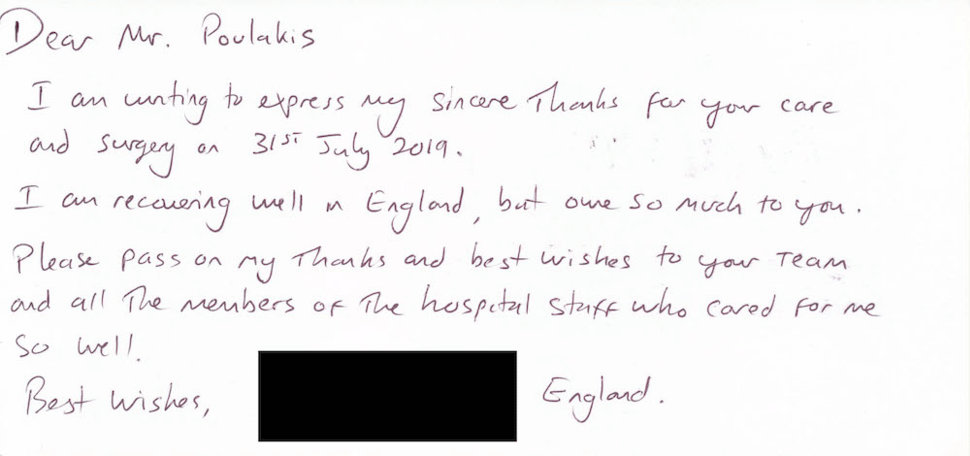 Dear Mr. Poulakis
I am writing to express my sincere Thanks for your care
and surgery on 31ST July 2019.
I am recovering well in England, but owe so much to you.
Please pass on my Thanks and best wishes to your Team
and all The members of The hospital Staff who cared for me
So well.
Best Wishes, England.